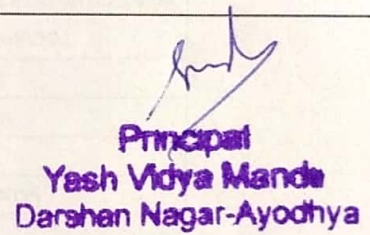 Principal
Yash Vidya Mandi
Darshan Nagar-Ayodhya